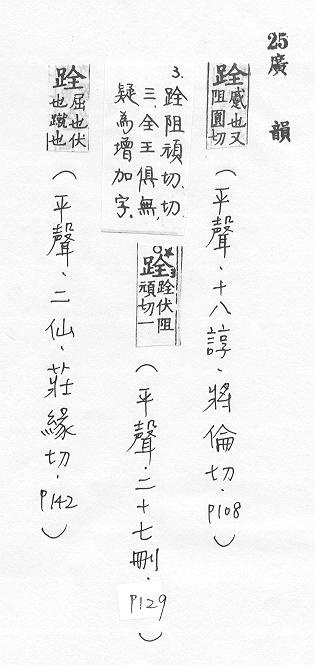 25
廣韻
跧 蹙也又
阻圓切
(平聲、十八諄、將倫切、P108)
3. 跧阻頑切、切
三、全王俱無、
疑為增加字。
跧 3 跧伏阻
頑切一
(平聲、二十七刪、P129)
跧 屈也伏
也蹴也
(平聲、二仙、莊緣切、P142)